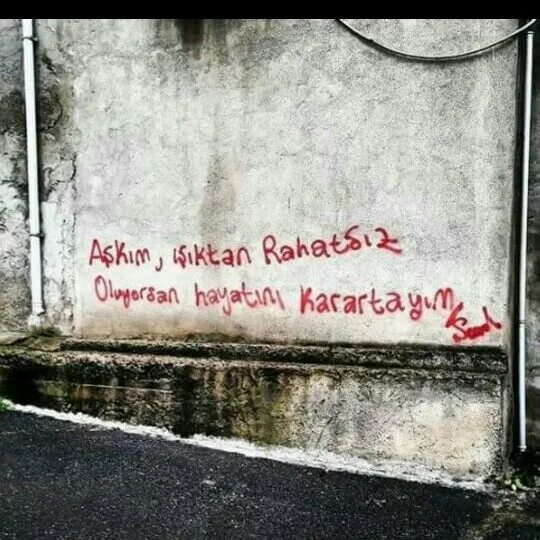 Aşkım, ışıktan Rahatsız
Oluyorsan hayatını Karartayım